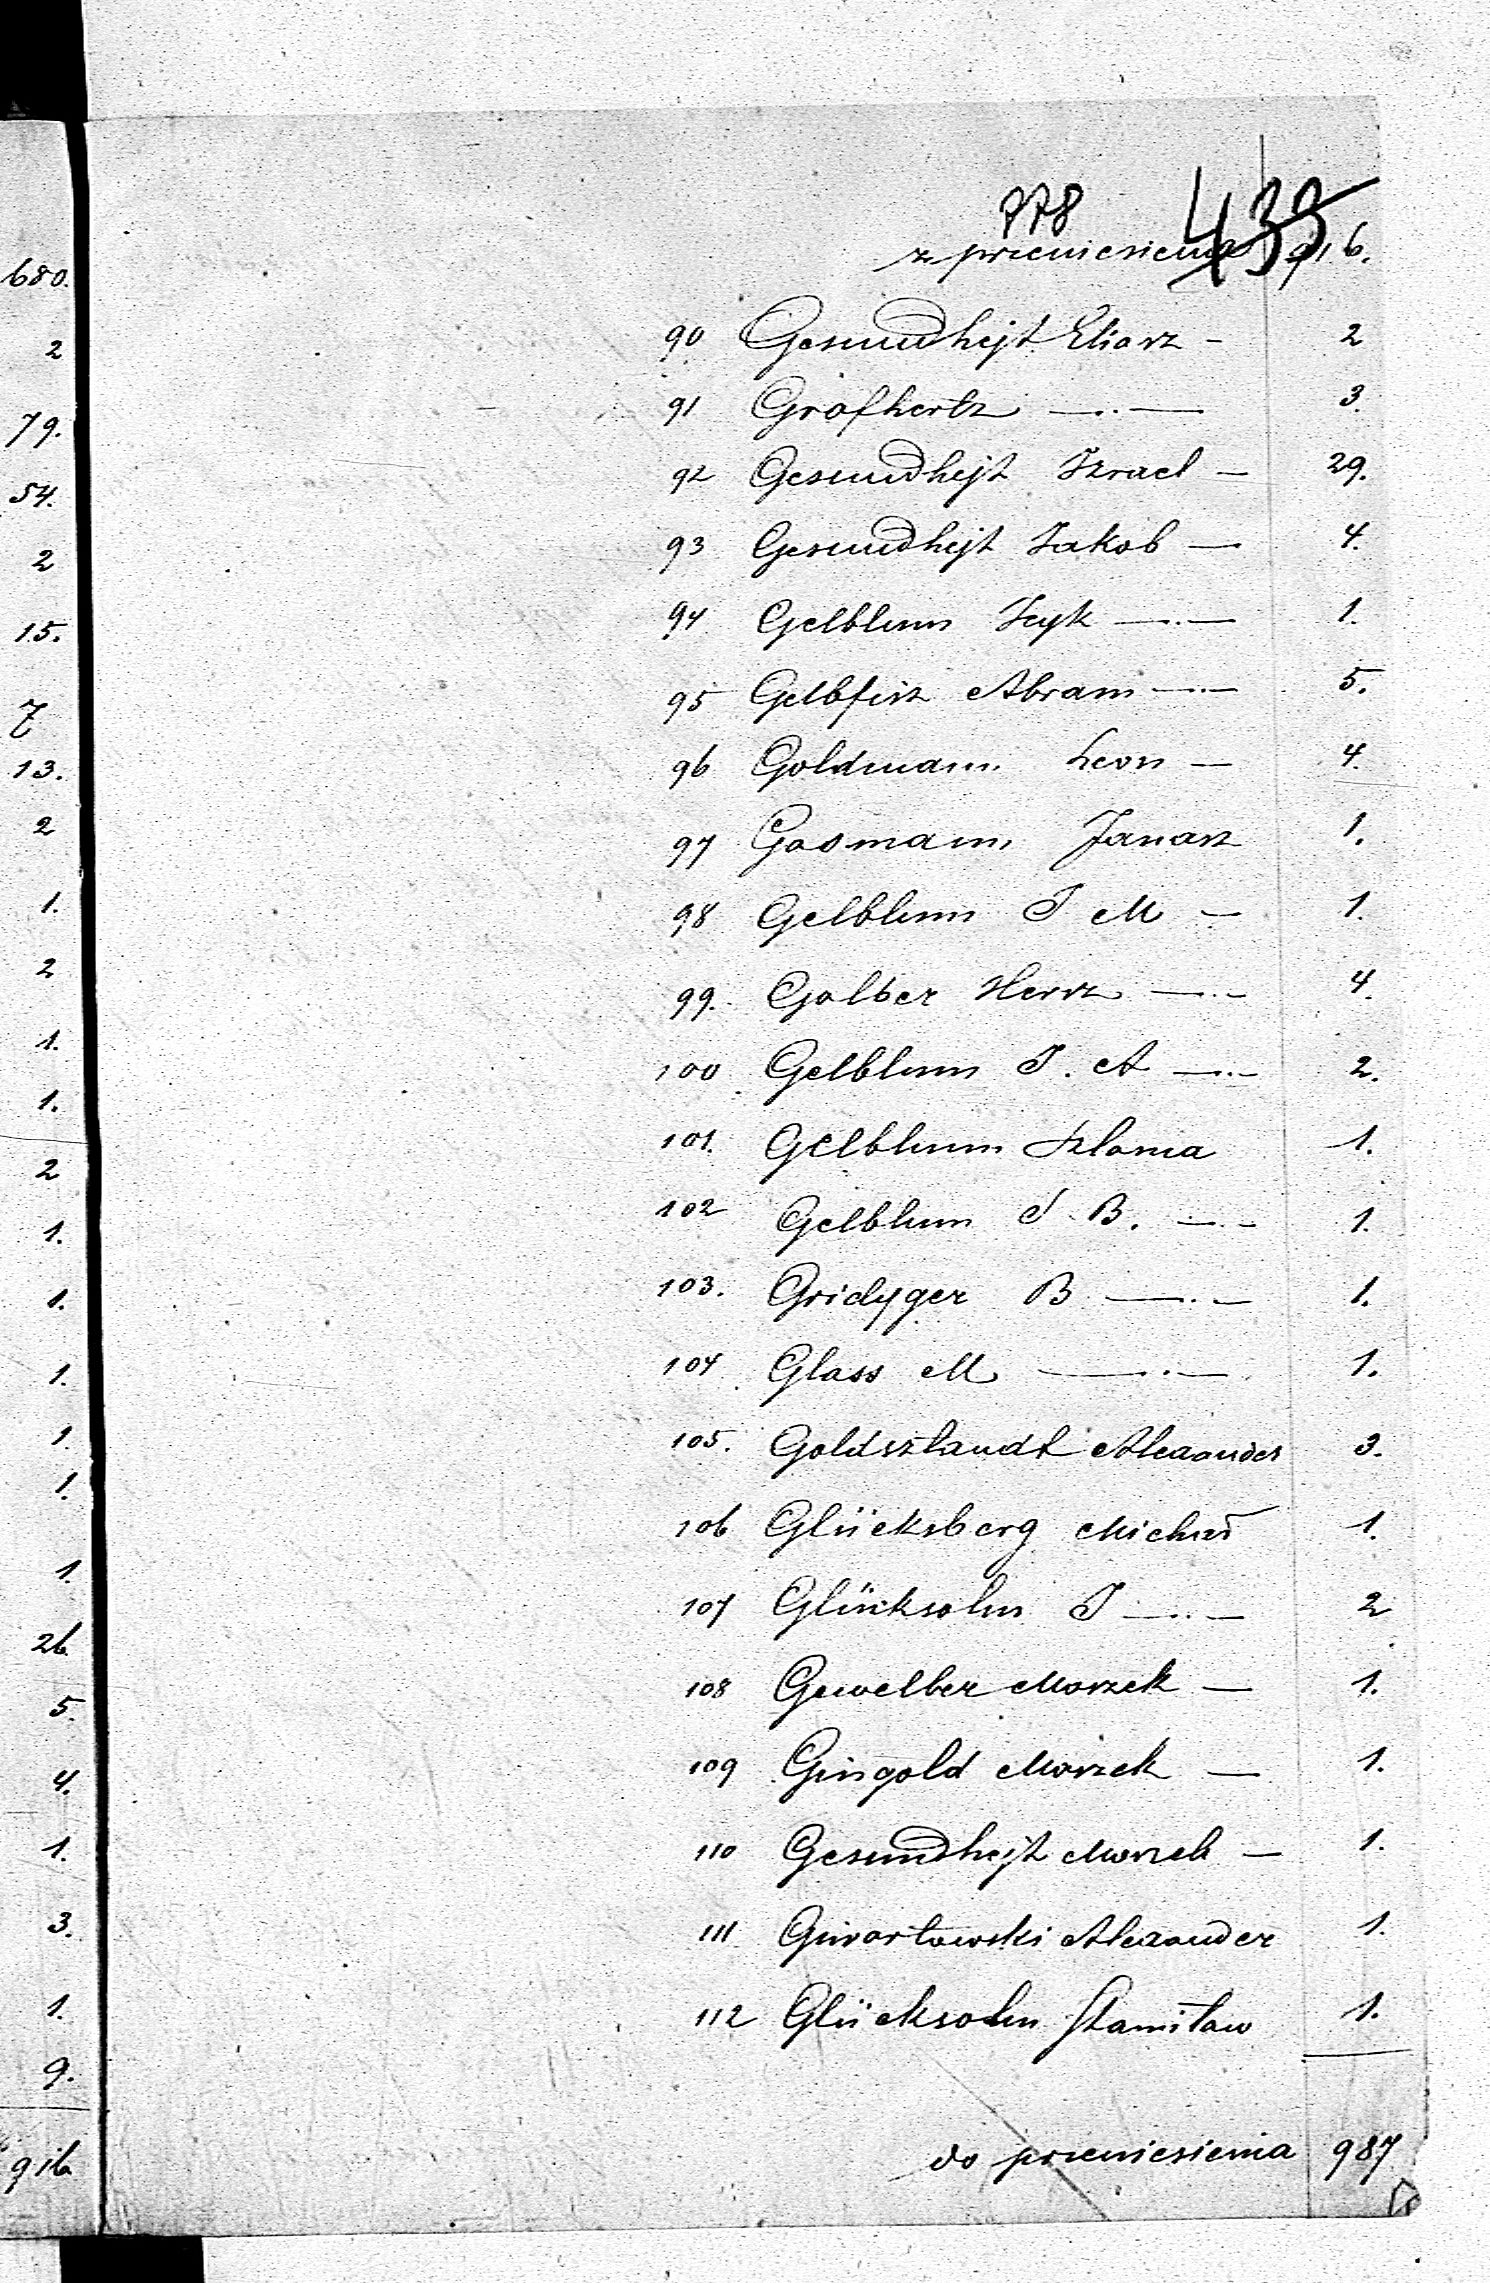 680.
2
79.
54.
2
15.
7
13.
2
1.
2
1.
1.
2
1.
1.
1.
1.
1.
1.
26.
5.
4.
1.
3.
1.
9.
916
778 433
z przeniesienia 916.
90 Gesundhejt Eliasz - 2
91 Grafhertz —..— 3.
92 Gesundhejt Izrael — 29.
93 Gesundhejt Jakob — 4.
94 Gelblum Icyk —.— 1.
95 Gelbfisz Abram —..— 5.
96 Goldmann Leon — 4.
97 Gosmann Janasz 1.
98 Gelblum J M — 1.
99. Golber Hersz —..— 4.
100 Gelblum J. A —..— 2.
101. Gelblum Szlama 1.
102 Gelblum S. B. —..— 1.
103. Gridyger B —.— 1.
104 Glass M —.— 1.
105. Goldsztandt Alexander 3.
106 Glücksberg Michał 1.
107 Glücksohn J —..— 2
108 Gewelber Moszek — 1.
109 Gingold Moszek — 1.
110 Gesundhejt Moszek — 1.
111 Giwartowski Alexander 1.
112 Glücksohn Stanisław 1.
do przeniesienia 987